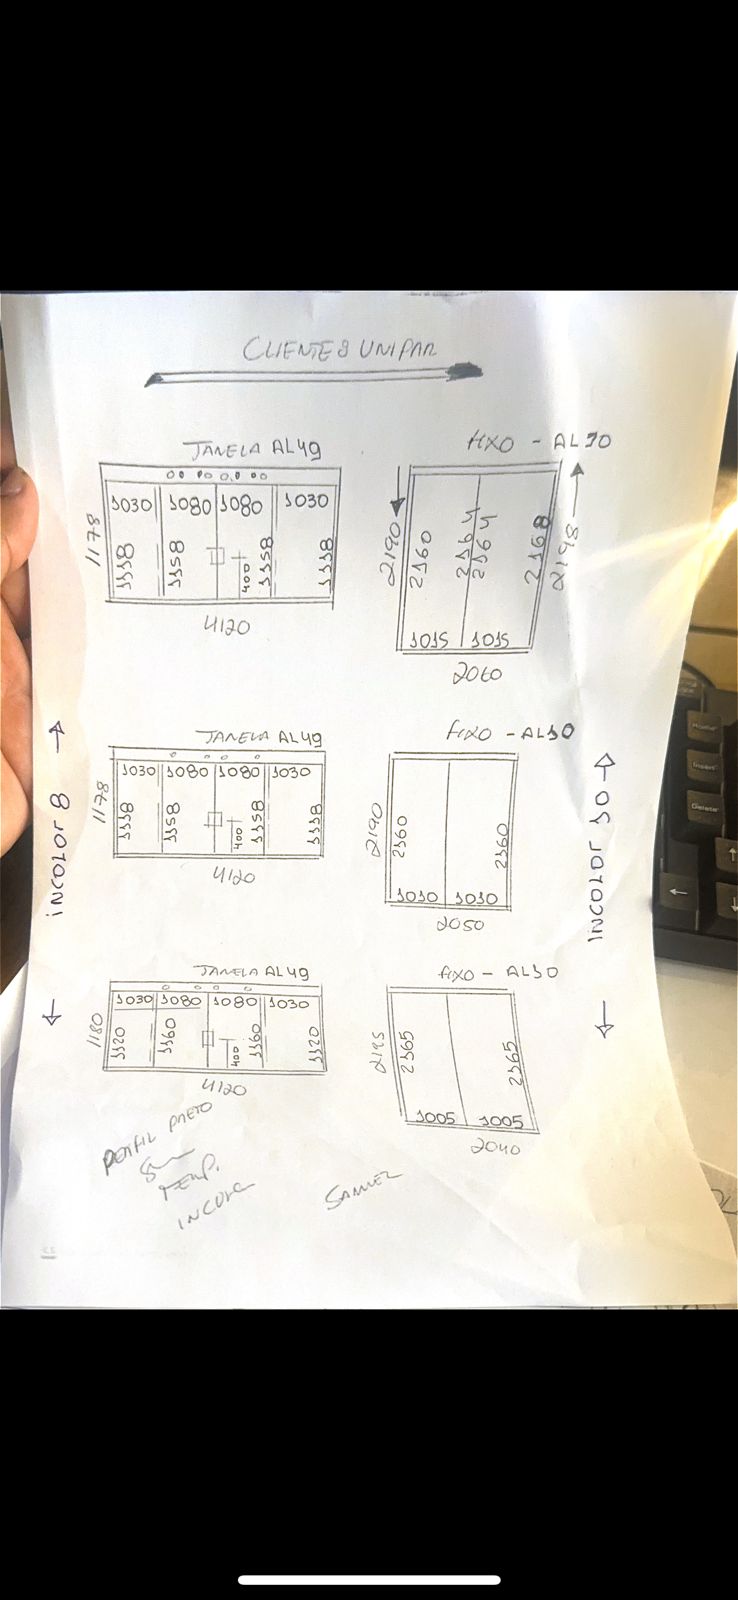 CLIENTE 8 UNIPAR
JANELA AL49
1178
1030 1080 1080 1030
1118 1158 400 1158 1118
4120
FIXO - AL10
2190
2160 2164 2164 2168
2198
1015 1015
2060
JANELA AL49
1178
1030 1080 1080 1030
1118 1158 400 1158 1118
4120
FIXO - AL10
2190
2160 2160
1010 1010
2050
INCOLOR 8
INCOLOR 10
JANELA AL49
1180
1030 1080 1080 1030
1120 1160 400 1160 1120
4120
FIXO - AL10
2195
2165 2165
1005 1005
2040
PERFIL PRETO
TEMP.
INCOLOR
SAMUEL
Home
Insert
Delete